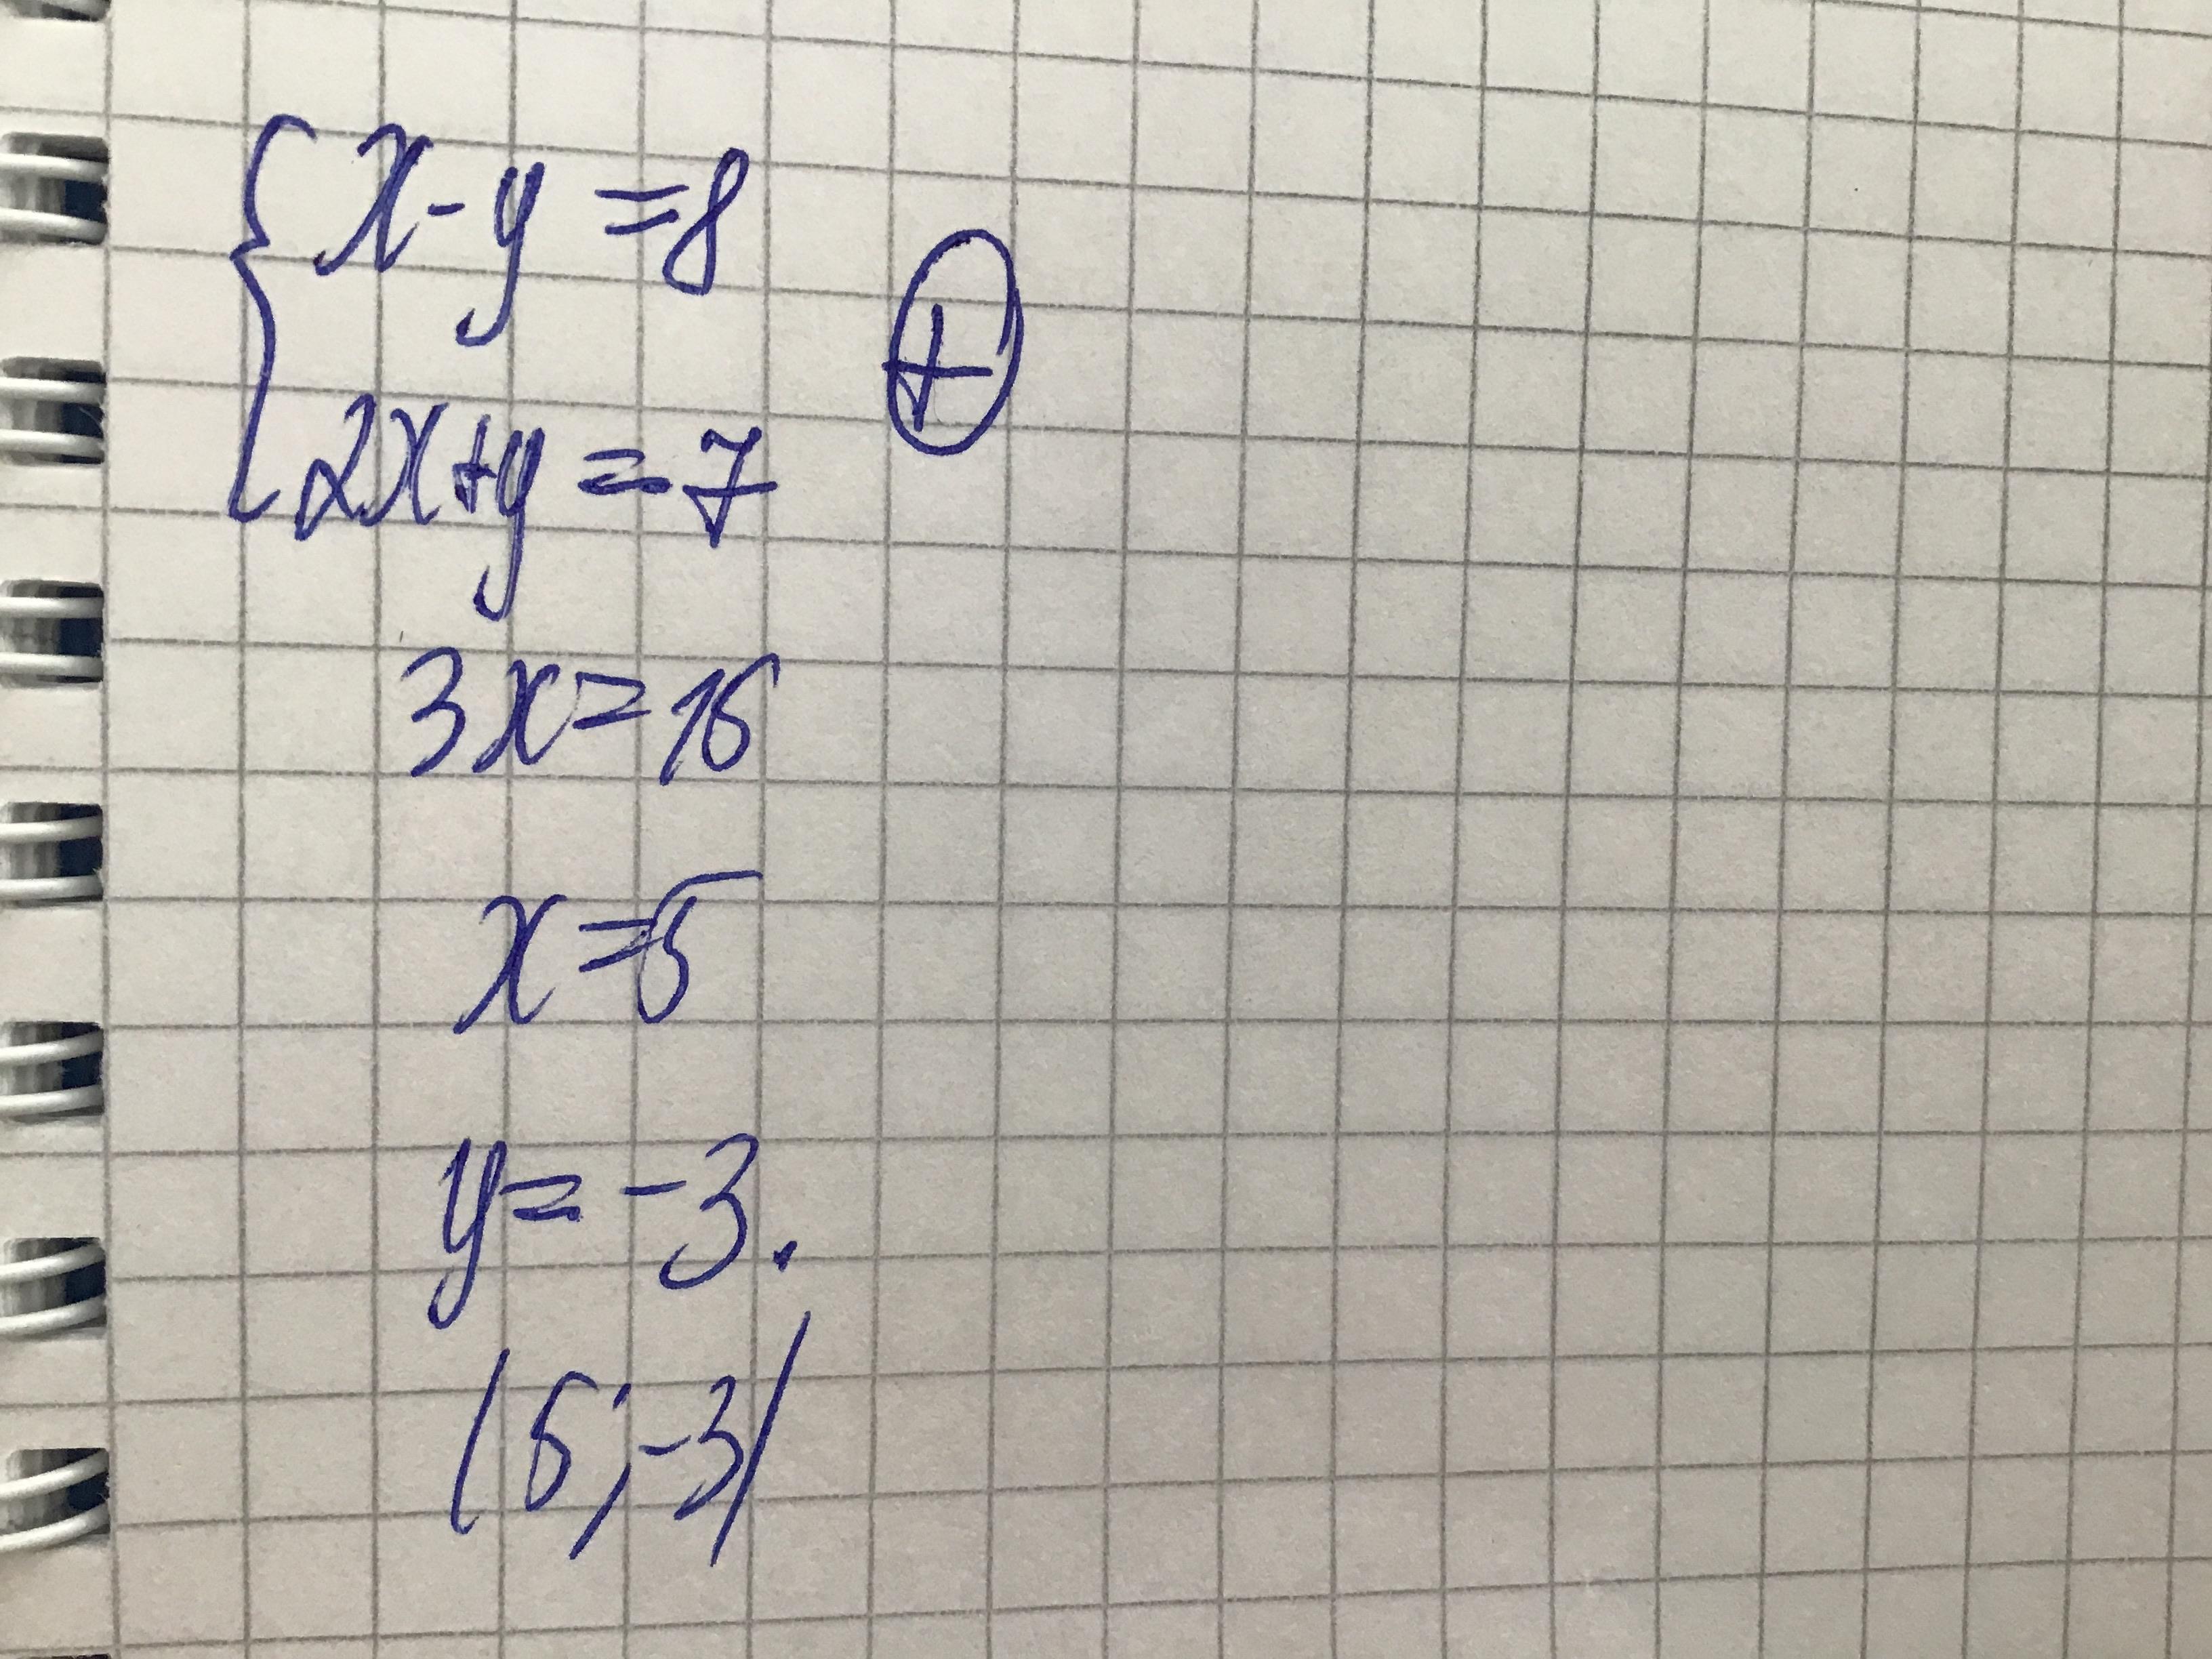 { x - y = 8
2x + y = 7 ⊕
3x = 15
x = 5
y = -3.
(5; -3)